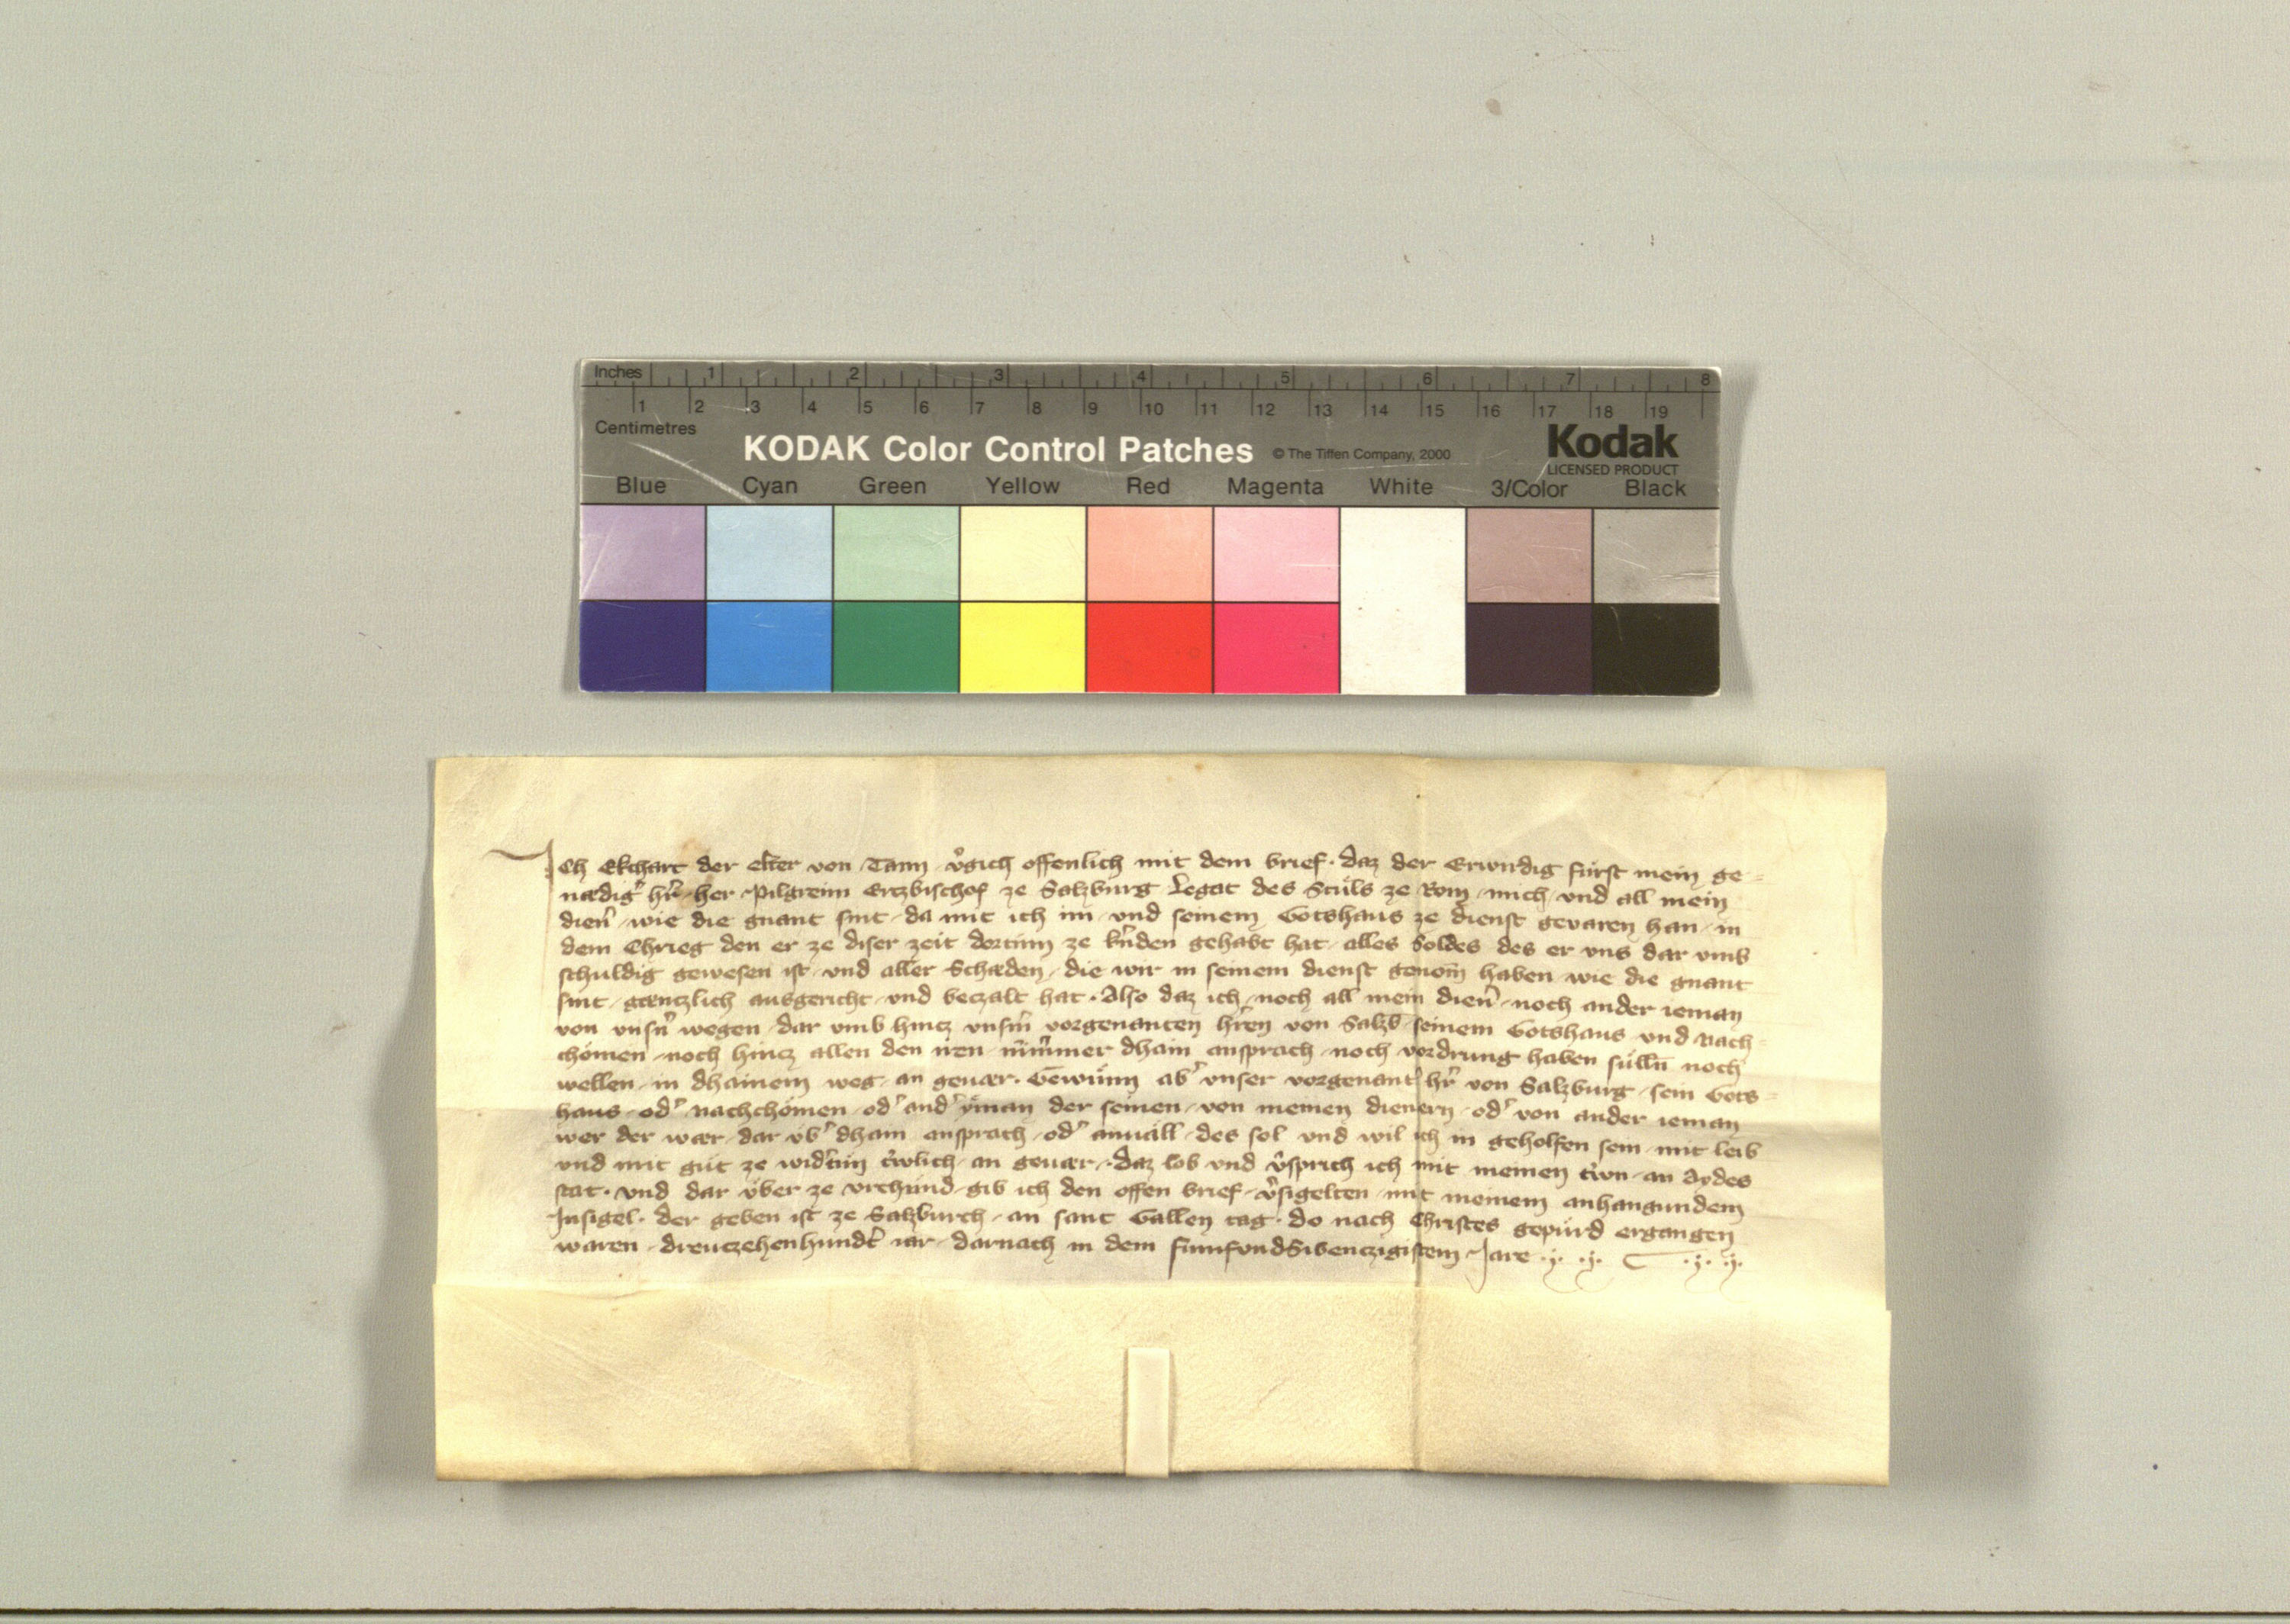 Inches 1 2 3 4 5 6 7 8
1 2 3 4 5 6 7 8 9 10 11 12 13 14 15 16 17 18 19
Centimetres
KODAK Color Control Patches © The Tiffen Company, 2000 Kodak
LICENSED PRODUCT
Blue Cyan Green Yellow Red Magenta White 3/Color Black
Ich Ekchart der elter von Tann v̾gich offenlich mit dem brief · daz der Erwirdig fürst mein ge=
nædig̾ hr̄ her Pilgreim Ertzbischof ze Salzburg Legat des Stůls ze Rom mich und all mein
dien̾ wie die gnant sint da mit ich im und seinem Gotshaus ze dienst gevaren han in
dem Chrieg den er ze diser zeit dortinn ze kn̾den gehabt hat alles Soldes des er uns dar umb
schuldig gewesen ist und aller Schæden die wir in seinem dienst genom̄ haben wie die gnant
sint gæntzlich ausgericht und beczalt hat · Also daz ich noch all mein dien̾ noch ander ieman
von unsn̾ wegen dar umb hintz unsm̾ vorgenanten hr̄en von Salzb̄ seinem Gotshaus und Nach=
chömen noch hintz allen den iren nim̄mer dhain ansprach noch vordrung haben sülln̄ noch
wellen in dhainem weg an gevær · Gewünn ab̾ unser vorgenant̾ hr̄ von Salzburg sein Gots=
haus od̾ nachchömen od̾ and̾ yman der seinen von meinen dienern od̾ von ander ieman
wer der wær dar üb̾ dhain ansprach od̾ anuäll des sol und wil ich in geholfen sein mit leib
und mit gůt ze wid̾tůn tr̾wlich an gevær · daz lob und v̾sprich ich mit meinen tr̾wn an Aydes
stat · und dar über ze urchund gib ich den offen brief v̾sigelten mit meinem anhangundem
Insigel · der geben ist ze Salzburch an sant Gallen tag · do nach Christes gepürd ergangen
waren dreutzehenhundt̾ iar darnach in dem fümfundSibenczigistem Jare